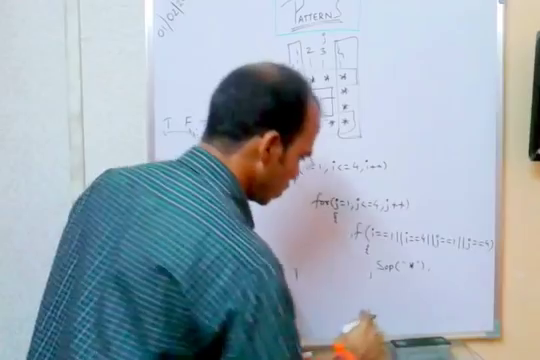 01/02/
PATTERNS
j
1 2 3 4
* * *
*
*
* *
T F
i=1, i<=4, i++)
for(j=1, j<=4, j++)
{
if(i==1||i==4||j==1||j==4)
{
Sop("*").